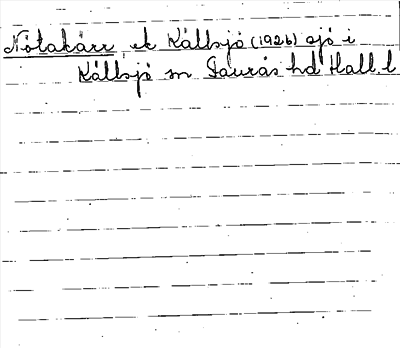 Nötakärr, ek Källsjö (1926) sjö i
Källsjö sn Faurås hd Hall. l